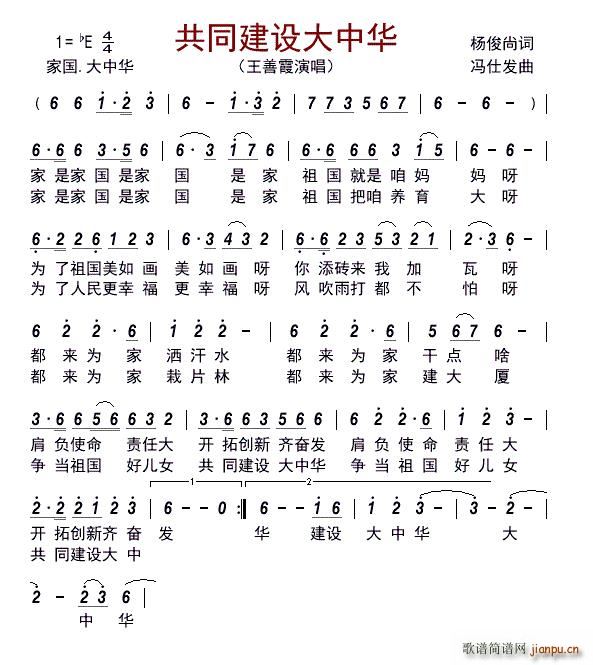 1= ♭E 4/4 共同建设大中华 杨俊尚词
家国.大中华 （王善霞演唱） 冯仕发曲
( 6 6 1·2 3 | 6 - 1·3 2 | 7 7 3 5 6 7 | 6 - - ) |
6·6 6 3·5 6 | 6·3 1 7 6 | 6·6 6 6 3 1 5 | 6 - - 6 |
家 是家 国 是家 国 是 家 祖 国 就是 咱 妈 妈 呀
家 是家 国 是家 国 是 家 祖 国 把咱 养 育 大 呀
6·2 2 6 1 2 3 | 6·2 4 3 2 | 6·2 2 2 5 3 2 1 | 2·3 6 |
为 了祖国美如 画 美 如 画 呀 你 添砖来 我 加 瓦 呀
为 了人民更幸 福 更 幸 福 呀 风 吹雨打 都 不 怕 呀
6 2 2·6 | 1 2 2 - | 6 2 2·6 | 5 6 7 6 - |
都 来 为 家 洒 汗 水 都 来 为 家 干 点 啥
都 来 为 家 栽 片 林 都 来 为 家 建 大 厦
3·6 6 5 6 6 3 2 | 1·6 6 6 5 6 7 | 3·6 2 6 | 1 2 3 - |
肩 负使命 责任大 开 拓创新 齐奋发 肩 负 使 命 责 任 大
争 当祖国 好儿女 共 同建设 大中华 争 当 祖 国 好 儿 女
1 2
2·2 2 1 2 3 | 6 - - 0 :| 6 - - 1 6 | 2 3 3 - | 3 - - 2 |
开 拓创新齐 奋 发 华 建设 大 中 华 大
共 同建设大 中
2 - - 2 3 | 6 - - - |
中 华
歌谱简谱网
jianpu.cn